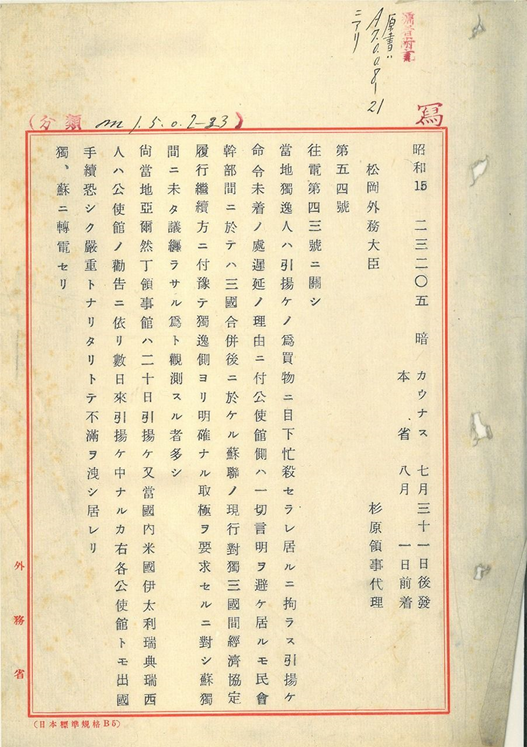 原書ハ
A.7.0.0.8-21
ニアリ
寫
(分類 m 1.5.0.2-33)
昭和15 二三二〇五 暗 カウナス 七月三十一日後發
本 省 八月 一日前着
松岡外務大臣 杉原領事代理
第五四號
往電第四三號ニ關シ
當地獨逸人ハ引揚ケノ爲買物ニ目下忙殺セラレ居ルニ拘ラス引揚ケ
命令未着ノ處遲延ノ理由ニ付公使館側ハ一切言明ヲ避ケ居ルモ民會
幹部間ニ於テハ三國合併後ニ於ケル蘇聯ノ現行對獨三國間經濟協定
履行繼續方ニ付豫テ獨逸側ヨリ明確ナル取極ヲ要求セルニ對シ蘇獨
間ニ未タ議纒ラサル爲ト觀測スル者多シ
尙當地亞爾然丁領事館ハ二十日引揚ケ又當國內米國伊太利瑞典瑞西
人ハ公使館ノ勸告ニ依リ數日來引揚ケ中ナルカ右各公使館トモ出國
手續恐シク嚴重トナリタリトテ不滿ヲ洩シ居レリ
獨、蘇ニ轉電セリ
外務省
(日本標準規格B5)